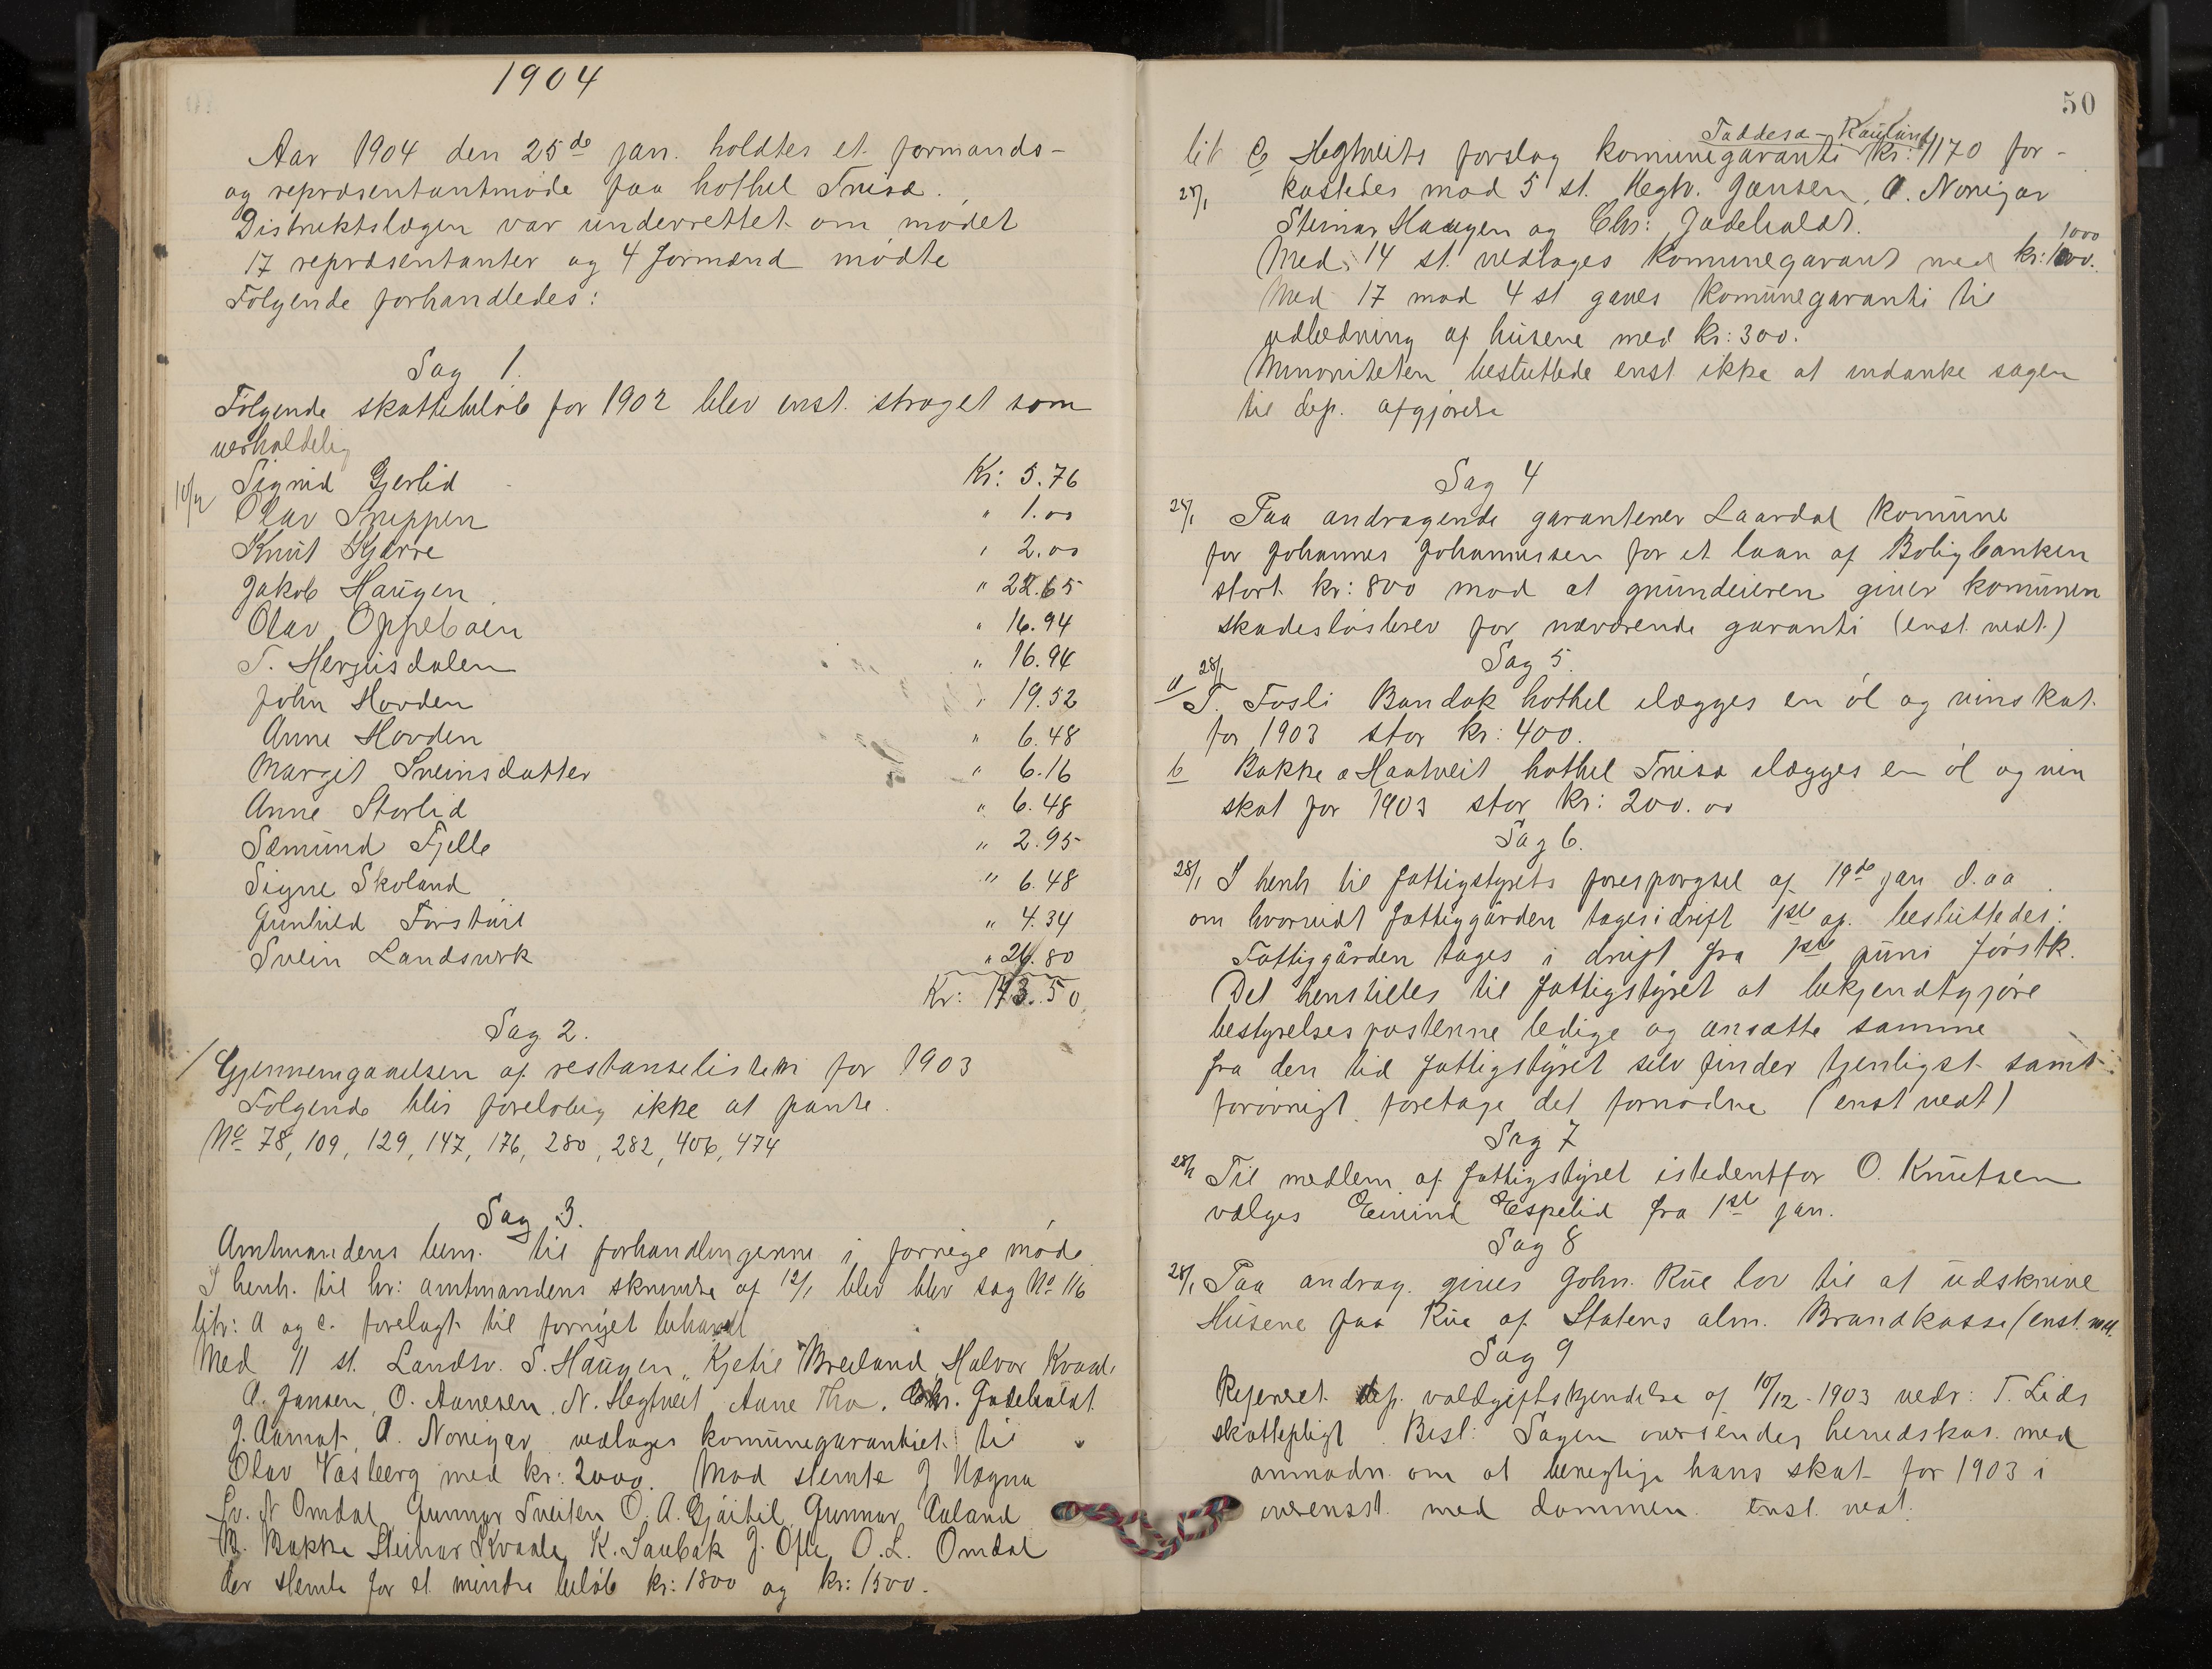 1904
Aar 1904 den 25de jan. holdtes et formands-
og repræsentantmøde paa hothel Tnisæ.
Distriktslægen var underrettet om mødet
17 repræsentanter og 4 formænd mødte
Følgende forhandledes:
Sag 1.
Følgende skattebeløb for 1902 blev enst. strøget som
uerholdelig
Sigrid Gjerlid Kr: 5.76
Olav Sneppen " 1.00
Knut Kjærre " 2.00
Jakob Haugen " 22.65
Olav Oppebøen " 16.94
T. Hergusdalen " 16.94
John Hovden " 19.52
Anne Hovden " 6.48
Margit Sveinsdatter " 6.16
Anne Storlid " 6.48
Sæmund Fjelle " 2.95
Signe Skoland " 6.48
Gunhild " 4.34
Svein Landsverk " 24.80
Kr: 143.50
Sag 2.
Gjennemgaaelsen af restanselisten for 1903
Følgende blir foreløbig ikke at pante.
No 78, 109, 129, 147, 176, 280, 282, 406, 474
Sag 3.
Amtmandens bem. til forhandlingerne i forrige møde
I henh. til hr: amtmandens skrivelse af 12/1 blev blev sag No 116
litr: A og C. forelagt til fornyet behandl
Med 11 st. Landsv. S. Haugen, Kjetil Breiland, Halvor Kvaale
A. Jansen, O. Aanesen, N. Hegtveit, Aane Tho, Chr. Gjadebaldt
J. Aamot, A. Norigar vedtoges komunegarantiet til
Olav Vasberg med kr: 2000. Mod stemte J Nægna
Sv. N Omdal Gunnar Tveiten O. A. Gjøitil Gunnar Aaland
B. Bakke Steinar Kvaale, K. Saubak J. Ofte, O. L. Omdal
der stemte for et mindre beløb kr: 1800 og kr: 1500.
50
Taddesæ - Rauland
lit C Hegtveits forslag komunegaranti kr: 1170 for-
kastedes mod 5 st. Hegtv. Jansen, A. Norigar
Steinar Haugen og Chr: Gjadebaldt.
1000
Med 14 st. vedtoges komunegarant med kr: 1000.
Med 17 mod 4 st gaves komunegaranti til
udlædning af husene med kr: 300.
Minoriteten besluttede enst ikke at indanke sagen
til dep. afgjørelse
Sag 4
25/1 Paa andragende garanterer Laardal komune
for Johannes Johannessen for et laan af Boligbanken
stort kr: 800 mod at grundeieren giver komunen
skadesløsbrev for nærværende garanti (enst. vedt.)
Sag 5.
28/1
a T. Fosli Bandak hothel ilægges en øl og vinskat.
for 1903 stor kr: 400.
b Bakke & Haatveit hothel Tnisæ ilægges en øl og vin
skat for 1903 stor kr: 200.00
Sag 6.
28/1 I henh til fattigstyrets forespørgsel af 19de jan d.aa
om hvorvidt fattiggården tages i drift 1ste ap. besluttedes:
Fattiggården tages i drift fra 1ste juni førstk.
Det henstilles til fattigstyret at bekjendtgjøre
bestyrelsesposterne ledige og ansætte samme
fra den tid fattigstyret selv finder tjenligst samt
forøvrigt foretage det fornødne (enst vedt)
Sag 7
28/1 Til medlem af fattigstyret istedentfor O. Knutsen
vælges Eivind Espelid fra 1ste jan.
Sag 8
28/1 Paa andrag. gives John Rue lov til at udskrive
Husene paa Rue af Statens alm. Brandkasse (enst. vedt.
Sag 9
Refereret dep. voldgiftskjendelse af 10/12-1903 vedr: T. Lids
skattepligt. Besl: Sagen oversendes herredskas. med
anmodn. om at berigtige hans skat for 1903 i
overensst. med dommen. enst. vedt.